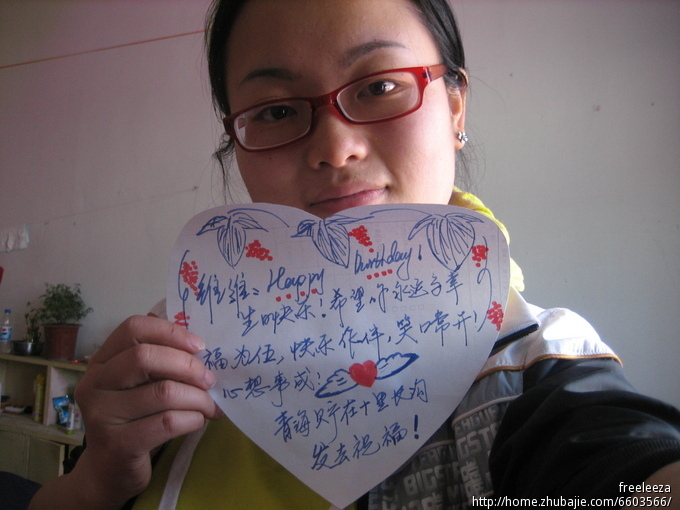 维维: Happy birthday!
生日快乐!希望你永远与幸
福为伍,快乐作伴,笑口常开!
心想事成!
青海 在十里长沟
发去祝福!
freeleeza
http://home.zhubajie.com/6603566/